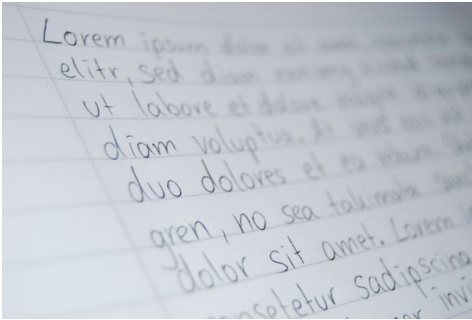 Lorem ipsum dolor sit amet,
elitr, sed diam nonumy eirmod
ut labore et dolore magna
diam voluptua. At vero eos et
duo dolores et ea rebum.
gren, no sea takimata
dolor sit amet. Lorem
consetetur sadipscing
invi